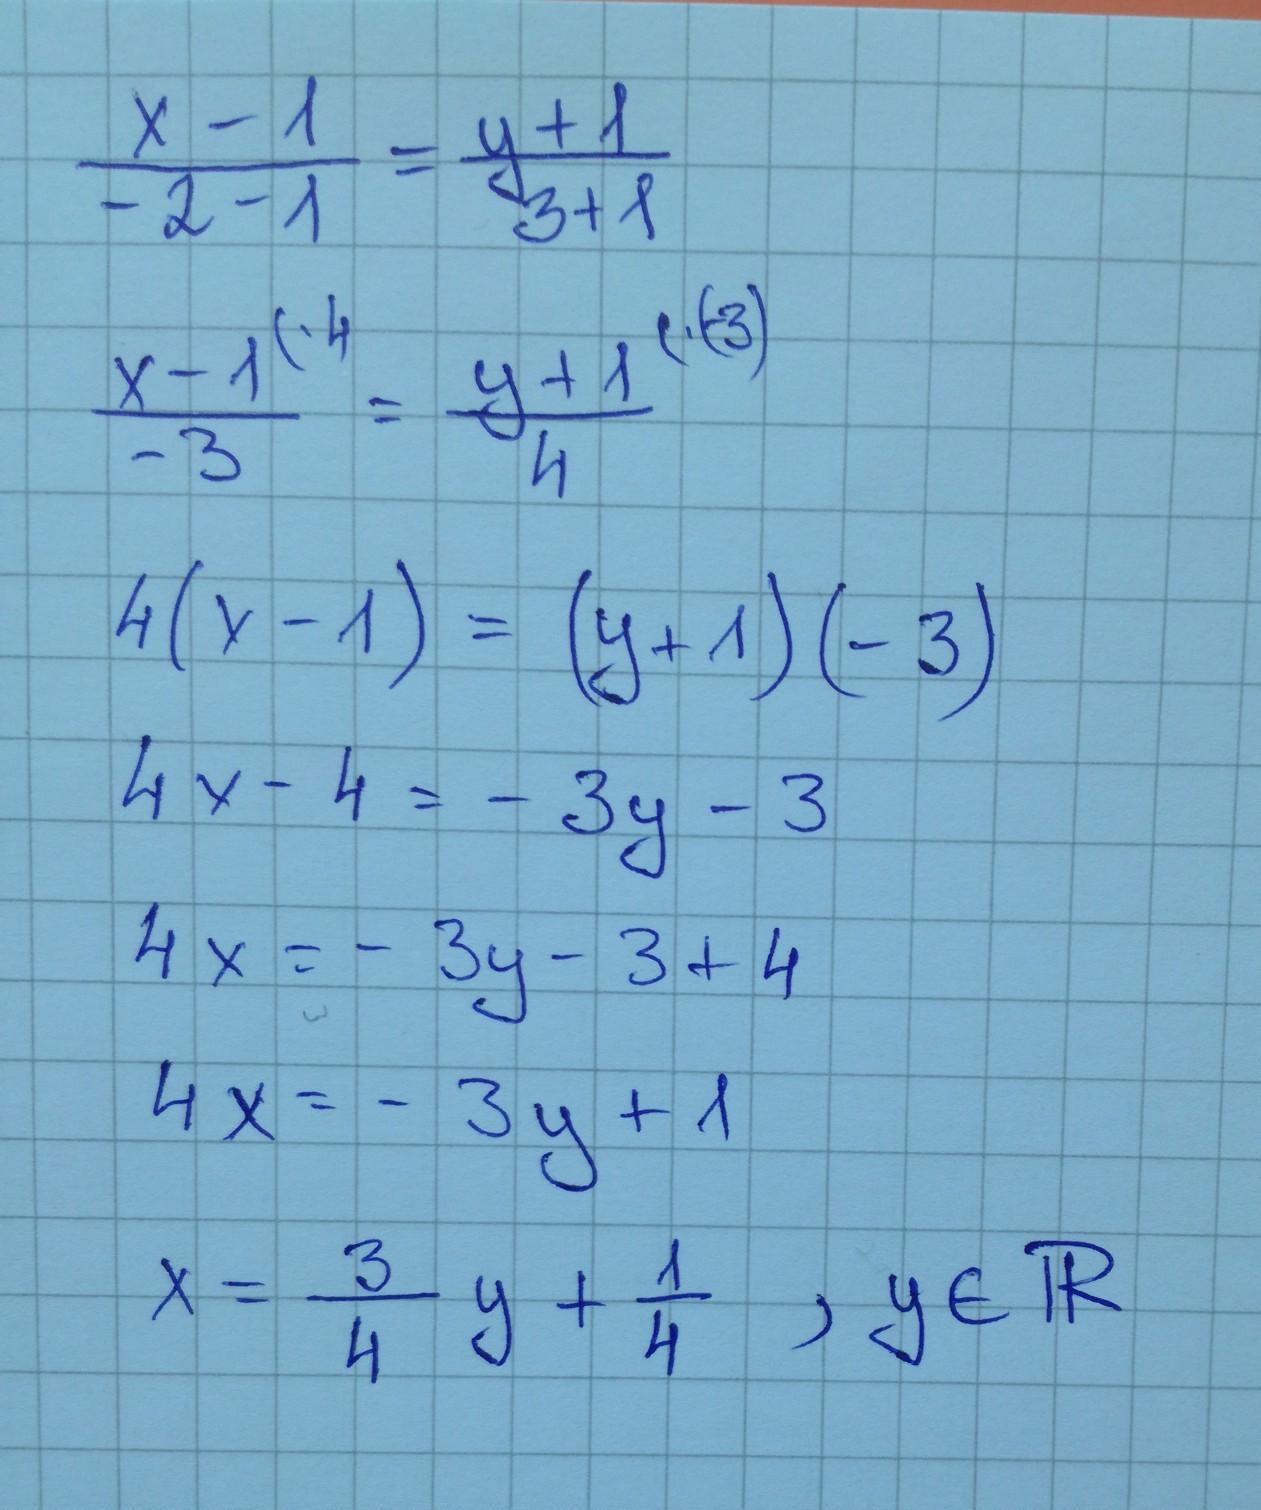 (x - 1)/(-2 - 1) = (y + 1)/(3 + 1)
(x - 1)/(-3) (· 4 = (y + 1)/4 (· (-3)
4(x - 1) = (y + 1)(-3)
4x - 4 = - 3y - 3
4x = - 3y - 3 + 4
4x = - 3y + 1
x = 3/4 y + 1/4 , y ∈ ℝ